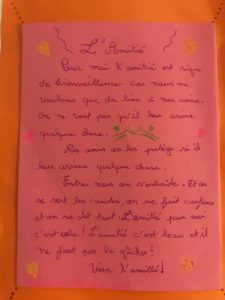 L'Amitié
Pour moi l'amitié est signe
de bienveillance car nous ne
voulons que du bien à nos amis.
On ne veut pas qu'il leur arrive
quelque chose.
Nos amis on les protège si il
leur arrive quelque chose.
Entre nous on s'entraide. Et on
se sert les coudes, on se fait confiance
et on se dit tout. L'amitié pour moi
c'est cela ! L'amitié c'est beau et il
ne faut pas la gâcher !
Vive l'amitié !